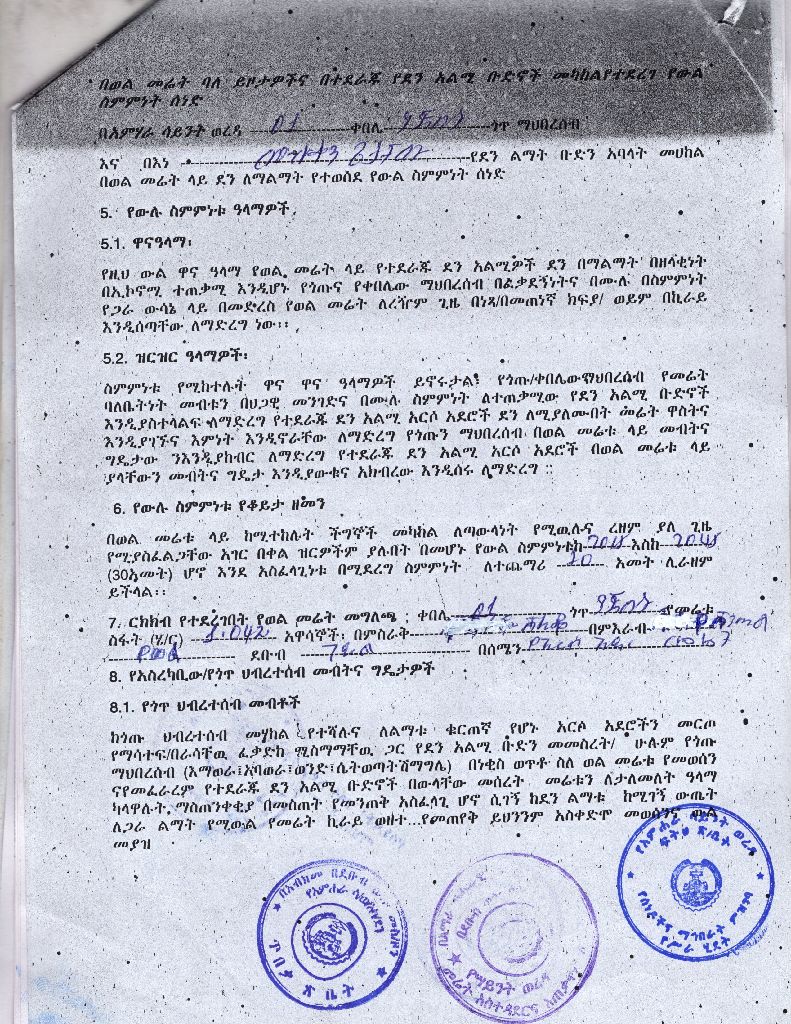 በወል መሬት ባለ ይዞታዎችና በተደራጁ የደን አልሚ ቡድኖች መካከልየተደረገ የውል
ስምምነት ሰነድ
በአምሃራ ሳይንት ወረዳ 01 ቀበሌ ጎጥ ማህበረሰብ
እና በእነ የደን ልማት ቡድን አባላት መሀከል
በወል መሬት ላይ ደን ለማልማት የተወሰደ የውል ስምምነት ሰነድ
5. የውሉ ስምምነቱ ዓላማዎች
5.1. ዋናዓላማ፡
የዚህ ውል ዋና ዓላማ የወል መሬት ላይ የተደራጁ ደን አልሚዎች ደን በማልማት በዘላቂነት
በኢኮኖሚ ተጠቃሚ እንዲሆኑ የጎጡና የቀበሌው ማህበረሰብ በፈቃደኝነትና በሙሉ በስምምነት
የጋራ ውሳኔ ላይ በመድረስ የወል መሬት ለረዥም ጊዜ በነጻ/በመጠነኛ ክፍያ/ ወይም በኪራይ
እንዲሰጣቸው ለማድረግ ነው፡፡
5.2. ዝርዝር ዓላማዎች፡
ስምምነቱ የሚከተሉት ዋና ዋና ዓላማዎች ይኖሩታል፤ የጎጡ/ቀበሌውማህበረሰብ የመሬት
ባለቤትነት መብቱን በህጋዊ መንገድና በሙሉ ስምምነት ለተጠቃሚው የደን አልሚ ቡድኖች
እንዲያስተላልፍ ለማድረግ የተደራጁ ደን አልሚ አርሶ አደሮች ደን ለሚያለሙበት መሬት ዋስትና
እንዲያገኙና እምነት እንዲኖራቸው ለማድረግ የጎጡን ማህበረሰብ በወል መሬቱ ላይ መብትና
ግዴታው ንእንዲያከብር ለማድረግ የተደራጁ ደን አልሚ አርሶ አደሮች በወል መሬቱ ላይ
ያላቸውን መብትና ግዴታ እንዲያውቁና አክብረው እንዲሰሩ ለማድረግ ፡፡
6. የውሉ ስምምነቱ የቆይታ ዘመን
በወል መሬቱ ላይ ከሚተከሉት ችግኞች መካከል ለጣውላነት የሚዉሉና ረዘም ያለ ጊዜ
የሚያስፈልጋቸው አገር በቀል ዝርዎችም ያሉበት በመሆኑ የውል ስምምነቱከ እስከ
(30አመት) ሆኖ እንደ አስፈላጊነቱ በሚደረግ ስምምነት ለተጨማሪ 30 አመት ሊራዘም
ይችላል፡፡
7. ርክክብ የተደረገበት የወል መሬት መግለጫ ; ቀበሌ 01 ጎጥ የመሬቱ
ስፋት (ሄ/ር) 1.042 አዋሳኞች፡ በምስራቅ በምእራብ
የወል ደቡብ ገደል በሰሜን
8. የአስረካቢው/የጎጥ ህብረተሰብ መብትና ግዴታዎች
8.1. የጎጥ ህብረተሰብ መብቶች
ከጎጡ ህብረተሰብ መሃከል የተሻሉና ለልማቱ ቁርጠኛ የሆኑ አርሶ አደሮችን መርጦ
የማሳተፍ/በራሳቸዉ ፈቃድከ ሚስማማቸዉ ጋር የደን አልሚ ቡድን መመስረት/ ሁሉም የጎጡ
ማህበረሰብ (እማወራ፣አባወራ፣ወንድ፣ሴትወጣትሽማግሌ) በነቂስ ወጥቶ ስለ ወል መሬቱ የመወሰን
ናየመፈራረም የተደራጁ ደን አልሚ ቡድኖች በውላቸው መሰረት መሬቱን ለታለመለት ዓላማ
ካላዋሉት ማስጠንቀቂያ በመስጠት የመንጠቅ አስፈላጊ ሆኖ ሲገኝ ከደን ልማቱ ከሚገኝ ውጤት
ለጋራ ልማት የሚውል የመሬት ኪራይ ወዘተ...የመጠየቅ ይህንንም አስቀድሞ መወሰንና ውል
መያዝ
የአምሐራ ሳይንት ወረዳ
ፍትህ ጽ/ቤት
የሰነዶችና ማኅበራት ምዝገባ
የሥራ ሂደት